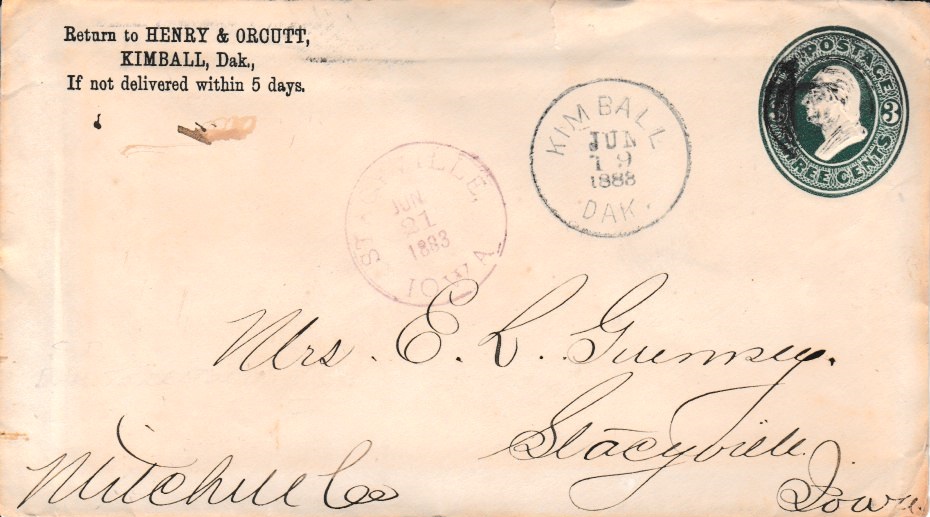 Return to HENRY & ORCUTT,
KIMBALL, Dak.,
If not delivered within 5 days.
POSTAGE
3
REE CENTS
KIMBALL
JUN
19
1888
DAK.
JUN
21
1883
IOWA
Mrs. E. L. Guernsey.
Stacyville.
Mitchell Co
Iowa.